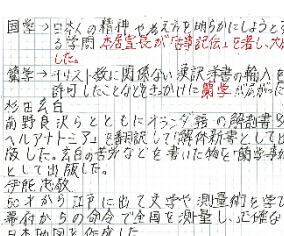 国学→日本人の精神や考え方を明らかにしようとす
る学問 本居宣長が「古事記伝」を著し、大
した。
蘭学→キリスト教に関係ない漢訳洋書の輸入を
許可したことなどをきっかけに蘭学が広がった
杉田玄白
前野良沢らとともにオランダ語の解剖書
ヘルアナトミア」を翻訳して「解体新書」として出
版した。玄白の苦労などを書いた物を「蘭学事
として出版した。
伊能忠敬
50才から江戸に出て天文学や測量術を学び
幕府からの命令で全国を測量し、正確な
日本地図を作成した